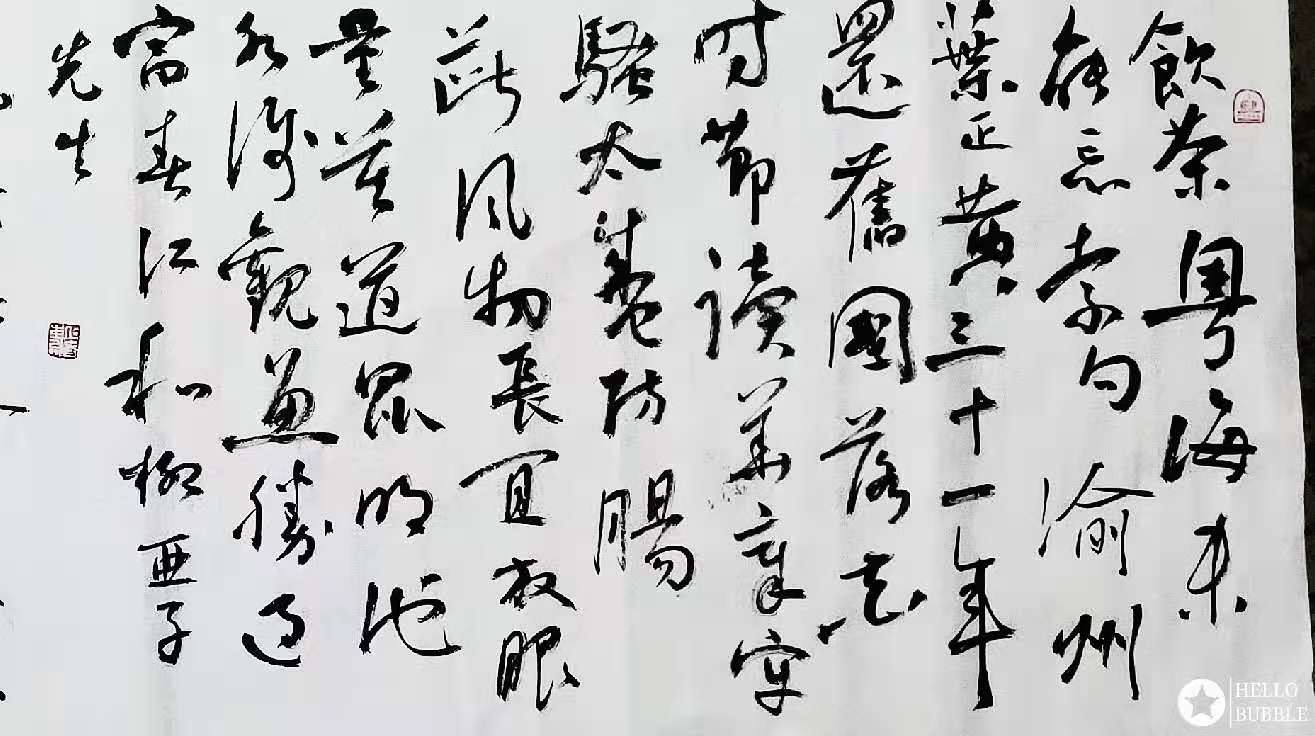 飲茶粵海未
能忘索句渝州
葉正黃三十一年
還舊國落花
时節讀華章牢
騷太盛防腸
斷風物長宜放眼
量莫道昆明池
水淺觀魚勝過
富春江和柳亞子
先生
HELLO
BUBBLE